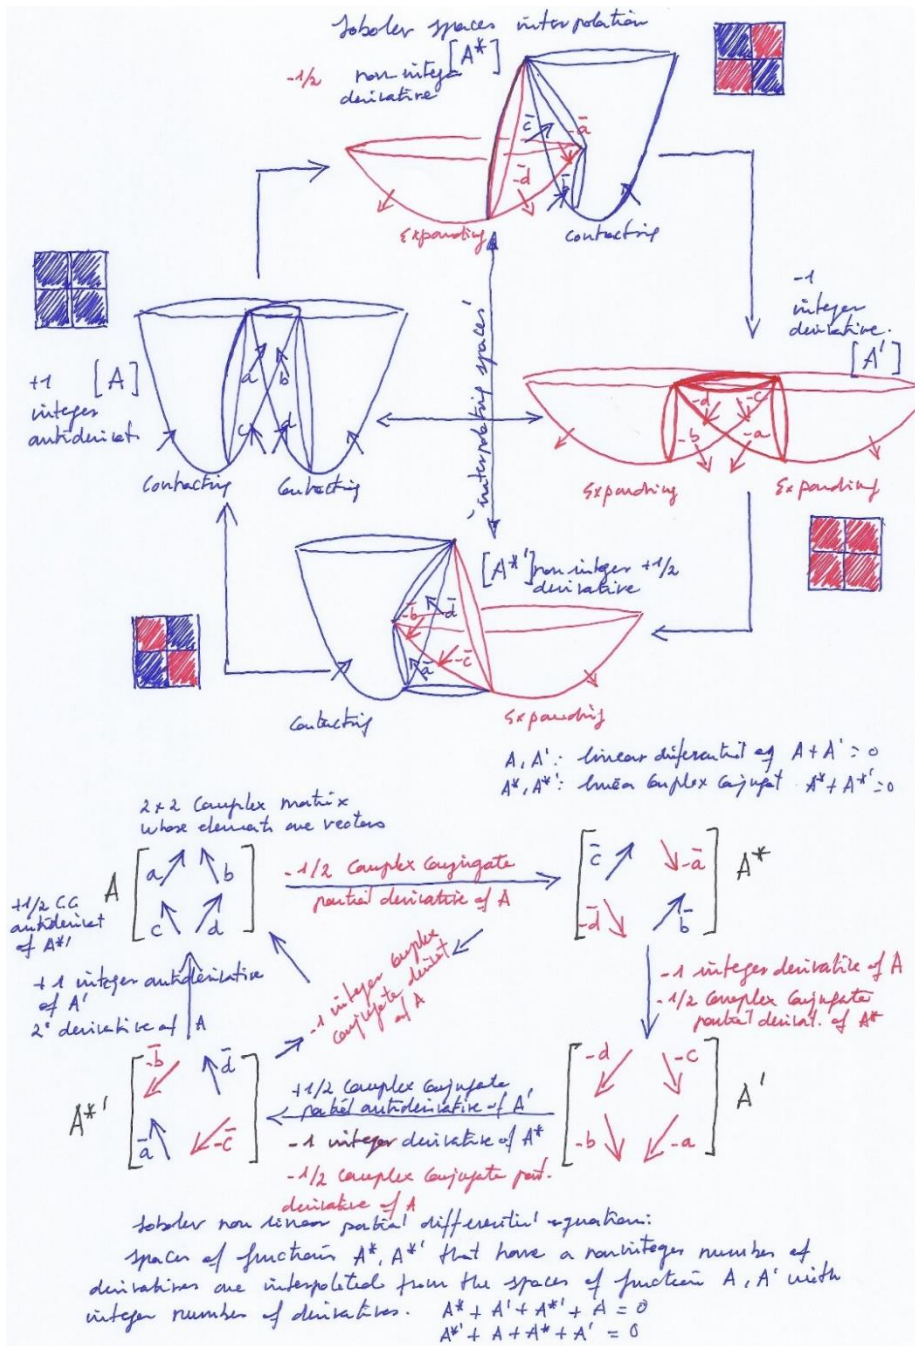 Sobolev spaces interpolation
-1/2 non integer [A*]
derivative
c̄ -ā
-d̄ b̄
Expanding Contracting
+1 [A]
integer
antiderivat.
a b
c d
Contracting Contracting
interpolating spaces
-1
integer
derivative.
[A']
-d -c
-b -a
Expanding Expanding
[A*'] non integer +1/2
derivative
-b̄ d̄
ā -c̄
Contracting Expanding
A, A': linear diferential eq A+A'=0
A*, A*': linear Complex Conjugat A*+A*'=0
2x2 Complex matrix
whose elements are vectors
A [a b
c d]
-1/2 Complex Conjugate
partial derivative of A
[c̄ -ā
-d̄ b̄] A*
+1/2 CC
antiderivat
of A*'
+1 integer antiderivative
of A'
2° derivative of A
-1 integer Complex
Conjugate derivat
of A
-1 integer derivative of A
-1/2 Complex Conjugate
partial derivat. of A*
A*' [-b̄ d̄
ā -c̄]
+1/2 Complex Conjugate
partial antiderivative of A'
-1 integer derivative of A*
-1/2 Complex Conjugate part.
derivative of A
[-d -c
-b -a] A'
Sobolev non linear partial differential equation:
spaces of functions A*, A*' that have a noninteger number of
derivatives are interpolated from the spaces of function A, A' with
integer number of derivatives. A* + A' + A*' + A = 0
A*' + A + A* + A' = 0